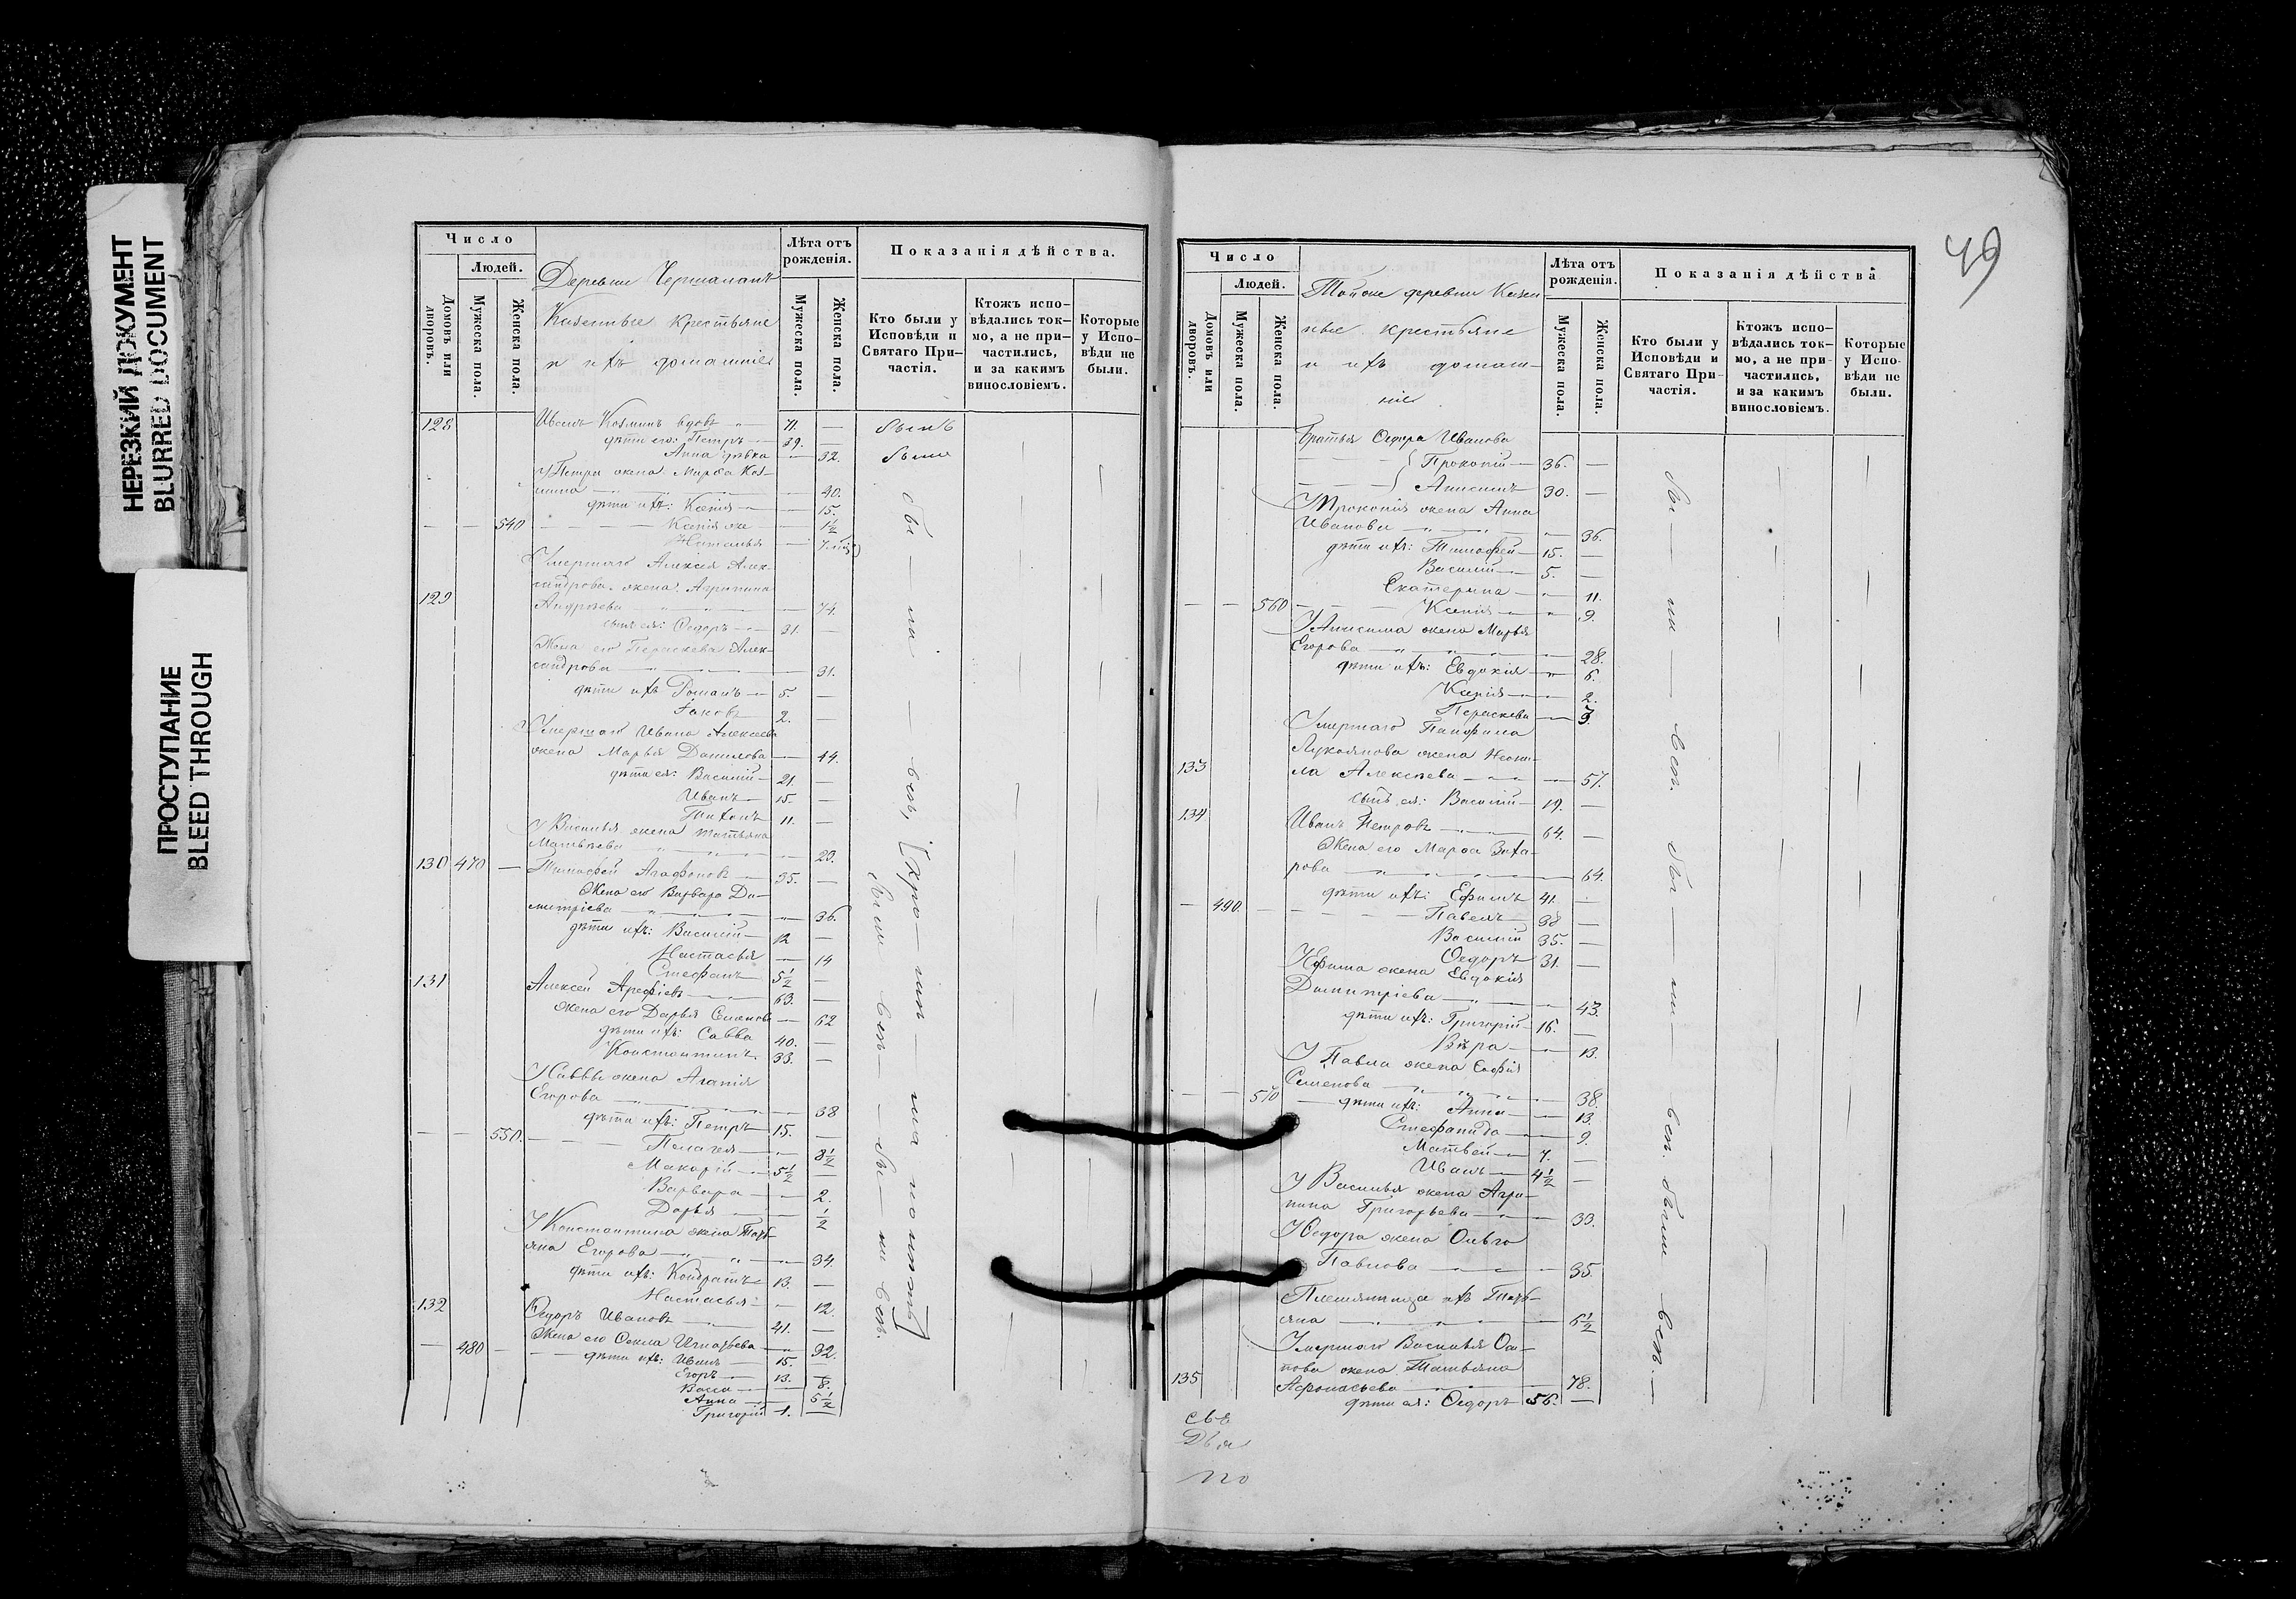 НЕРЕЗКИЙ ДОКУМЕНТ
BLURRED DOCUMENT
ПРОСТУПАНИЕ
BLEED THROUGH
Число
Людей.
Домовъ или дворовъ.
Мужеска пола.
Женска пола.
Деревни
Казенные крестьяне
и ихъ домашніе
Лѣта отъ рожденія.
Мужеска пола.
Женска пола.
Показанія дѣйства.
Кто были у Исповѣди и Святаго При-частія.
Ктожъ испо-вѣдались ток-мо, а не при-частились, и за какимъ винословіемъ.
Которые у Испо-вѣди не были.
128 Иванъ Козминъ вдовъ 71. — былъ
дѣти его: Петръ 39. —
Анна дѣвка — 32. были
У Петра жена Марѳа Коз-
мина — 40.
дѣти ихъ: Ксенія — 15.
540 Ксенія же — 1½
Наталья —
Умершаго Алексея Алек-
сандрова жена Агрипина
129 Андреева — 74.
сынъ ея: Ѳедоръ 31. —
Жена его Параскева Алек-
сандрова — 31.
дѣти ихъ Романъ 5. —
Іаковъ 2. —
Умершаго Ивана Алексеева
жена Марья Данилова — 44.
дѣти ея: Василій 21. —
Иванъ 15. —
Тихонъ 11. —
У Василья жена Татьяна
Матвѣева — 20.
130 470 — Тимофей Агафоновъ 35. —
Жена его Варвара Ди-
митріева — 36.
дѣти ихъ: Василій 12 —
Настасья — 14
Стефанъ 5½ —
131 Алексей Арефіевъ 63. —
жена его Дарья Семенова — 62
дѣти ихъ: Савва 40. —
Константинъ 33. —
У Саввы жена Агапія
Егорова — 38
дѣти ихъ: Петръ 15. —
550. Пелагея — 8½
Макарій 5½ —
Варвара — 2.
Дарья — ½
У Константина жена Тать-
яна Егорова — 34
дѣти ихъ: Кондратъ 13. —
Настасья — 12.
132 Ѳедоръ Ивановъ 41. —
Жена его Ѳекла Игнатьева — 32.
480 дѣти ихъ: Иванъ 15. —
Егоръ 13. —
Васса — 8.
Анна — 5½
Григорій 1. —
49
Число
Людей.
Домовъ или дворовъ.
Мужеска пола.
Женска пола.
Тойже деревни Казен-
ные крестьяне
и ихъ домаш-
ніе.
Лѣта отъ рожденія.
Мужеска пола.
Женска пола.
Показанія дѣйства
Кто были у Исповѣди и Святаго При-частія.
Ктожъ испо-вѣдались ток-мо, а не при-частились, и за какимъ винословіемъ.
Которые у Испо-вѣди не были.
Братья Ѳедора Иванова
Прокопій 36. —
Анисимъ 30. —
У Прокопія жена Анна
Иванова — 36.
дѣти ихъ: Тимофей 15. —
Василій 5. —
Екатерина — 11.
560 Ксенія — 9.
У Анисима жена Марья
Егорова — 28.
дѣти ихъ: Евдокія — 6.
Ксенія — 2.
Параскева —
Умершаго Панфила
Лукоянова жена Неони-
133 ла Алексѣева — 57.
сынъ ея: Василій 19. —
134 Иванъ Петровъ 64. —
Жена его Марѳа Заха-
рова — 64.
дѣти ихъ: Ефимъ 41. —
490. Павелъ 38 —
Василій 35. —
Ѳедоръ 31. —
У Ефима жена Евдокія
Димитріева — 43.
дѣти ихъ: Григорій 16. —
Вѣра — 13.
У Павла жена Софія
Семенова — 38.
570 дѣти ихъ: Анна — 13.
Стефанида — 9.
Матвей 7. —
Иванъ 4½ —
У Василья жена Агри-
пина Григорьева — 33.
У Ѳедора жена Ольга
Павлова — 35.
Племянница ихъ Тать-
яна — 6½
Умершаго Василья Оси-
пова жена Татьяна
135 Аѳонасьева — 78.
дѣти ея: Ѳедоръ 56. —